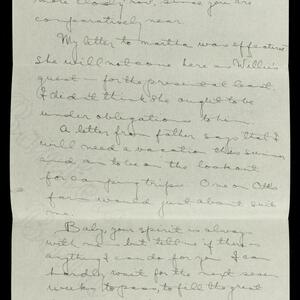 more closely now, since you are
comparatively near.
My letter to Martha was effective
She will not come here as Willie's
guest - for the present at least.
I didn't think she ought to be
under obligations to him.
A letter from father says that I
will need a vacation this summer
and to be on the lookout
for camping trips. One on Otto's
farm would just about suit
me.
Baby, your spirit is always
with me - but tell me if there is
anything I can do for you. I can
hardly wait for the next seven
weeks to pass, to fill the great